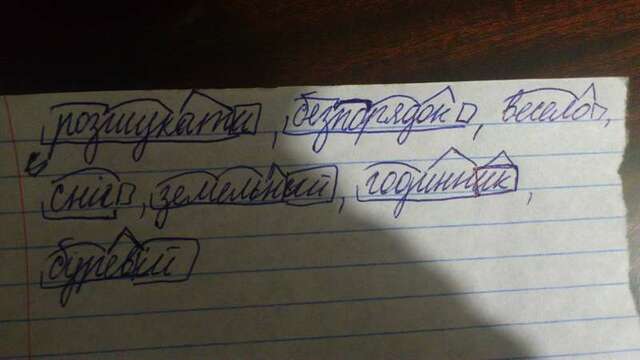 розшукати, безпорядок, весело,
сніг, земельний, годинник,
буревій